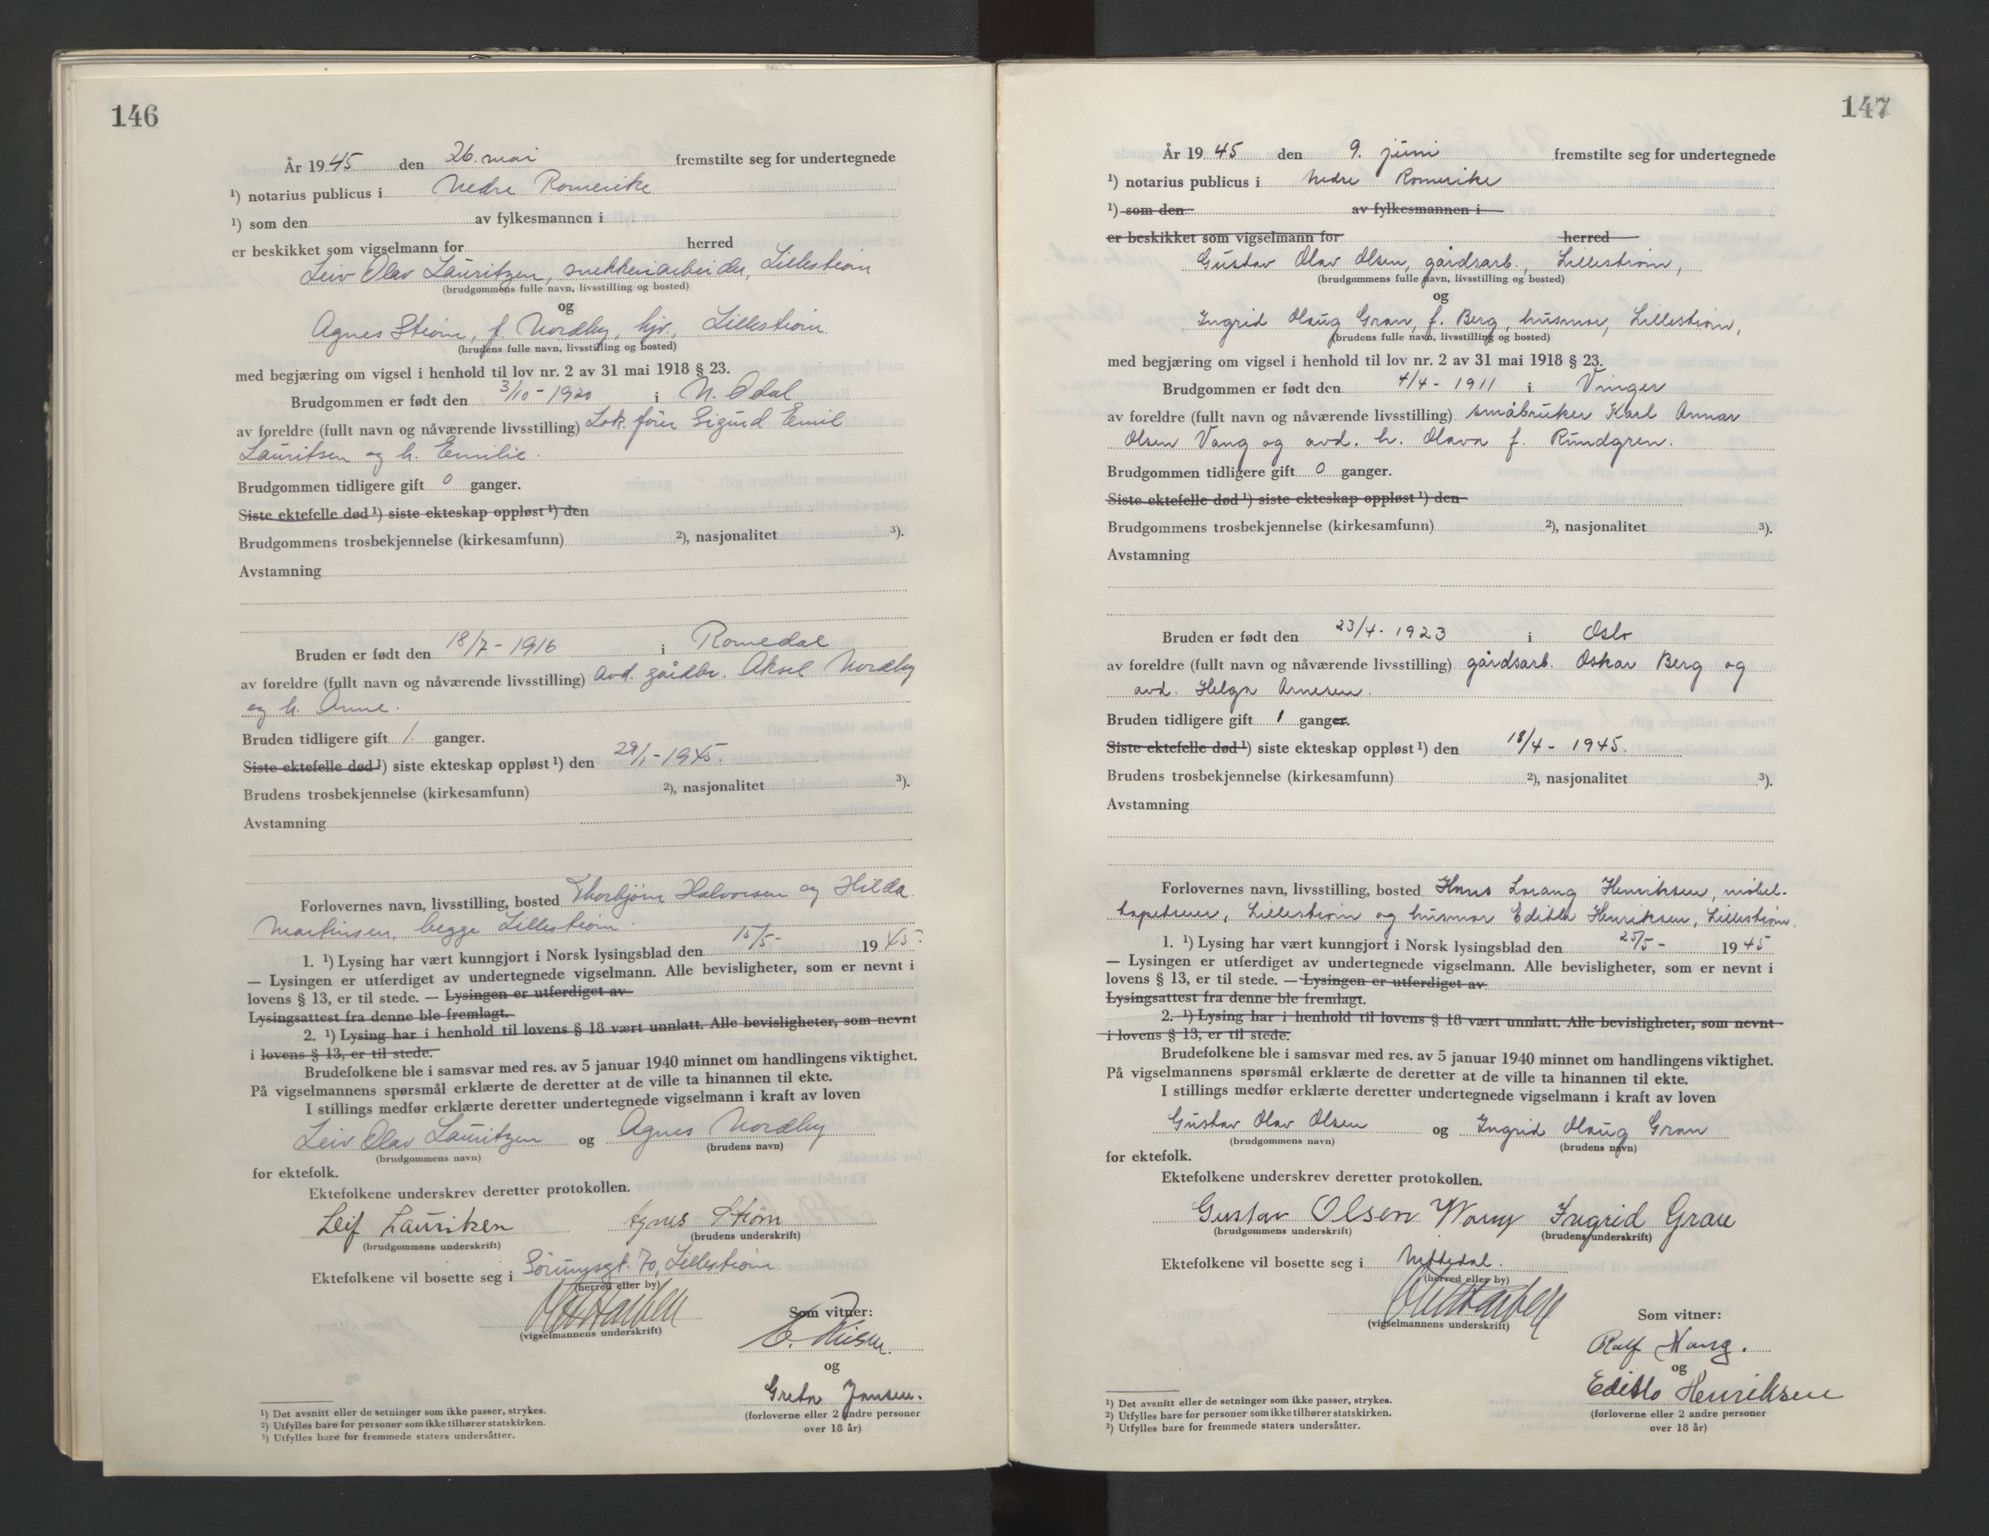 146
År 1945 den 26. mai fremstilte seg for undertegnede
¹) notarius publicus i Nedre Romerike
¹) som den av fylkesmannen i
er beskikket som vigselmann for herred
Leiv Olav Lauritzen, snekkeriarbeider, Lillestrøm
(brudgommens fulle navn, livsstilling og bosted)
og
Agnes Strøm, f. Nordby, hjv., Lillestrøm
(brudens fulle navn, livsstilling og bosted)
med begjæring om vigsel i henhold til lov nr. 2 av 31 mai 1918 § 23.
Brudgommen er født den 3/10-1920 i N. Odal
av foreldre (fullt navn og nåværende livsstilling) Lok. fører Sigurd Emil
Lauritsen og h. Emilie.
Brudgommen tidligere gift 0 ganger.
Siste ektefelle død ¹) siste ekteskap oppløst ¹) den
Brudgommens trosbekjennelse (kirkesamfunn) ²), nasjonalitet ³).
Avstamning
Bruden er født den 18/7-1916 i Romedal
av foreldre (fullt navn og nåværende livsstilling) avd. gårdbr. Aksel Nordby
og h. Anne.
Bruden tidligere gift 1 ganger.
Siste ektefelle død ¹) siste ekteskap oppløst ¹) den 29/1-1945.
Brudens trosbekjennelse (kirkesamfunn) ²), nasjonalitet ³).
Avstamning
Forlovernes navn, livsstilling, bosted Thorbjørn Halvorsen og Hilda
Martinsen, begge Lillestrøm.
1. ¹) Lysing har vært kunngjort i Norsk lysingsblad den 15/5- 1945.
— Lysingen er utferdiget av undertegnede vigselmann. Alle bevisligheter, som er nevnt i
lovens § 13, er til stede. — Lysingen er utferdiget av
Lysingsattest fra denne ble fremlagt.
2. ¹) Lysing har i henhold til lovens § 18 vært unnlatt. Alle bevisligheter, som nevnt
i lovens § 13, er til stede.
Brudefolkene ble i samsvar med res. av 5 januar 1940 minnet om handlingens viktighet.
På vigselmannens spørsmål erklærte de deretter at de ville ta hinannen til ekte.
I stillings medfør erklærte deretter undertegnede vigselmann i kraft av loven
Leiv Olav Lauritzen og Agnes Nordby
(brudgommens navn) (brudens navn)
for ektefolk.
Ektefolkene underskrev deretter protokollen.
Leif Lauritzen Agnes Strøm
(brudgommens underskrift) (brudens underskrift)
Ektefolkene vil bosette seg i Sørumsgt. 70, Lillestrøm
(herred eller by)
(vigselmannens underskrift)
Som vitner:
og
Greta Jansen.
(forloverne eller 2 andre personer
over 18 år)
¹) Det avsnitt eller de setninger som ikke passer, strykes.
²) Utfylles bare for personer som ikke tilhører statskirken.
³) Utfylles bare for fremmede staters undersåtter.
147
År 1945 den 9. juni fremstilte seg for undertegnede
¹) notarius publicus i Nedre Romerike
¹) som den av fylkesmannen i
er beskikket som vigselmann for herred
Gustav Olav Olsen, gårdsarb., Lillestrøm,
(brudgommens fulle navn, livsstilling og bosted)
og
Ingrid Olaug Gran, f. Berg, husmor, Lillestrøm,
(brudens fulle navn, livsstilling og bosted)
med begjæring om vigsel i henhold til lov nr. 2 av 31 mai 1918 § 23.
Brudgommen er født den 4/4-1911 i Vinger
av foreldre (fullt navn og nåværende livsstilling) småbruker Karl Annar
Olsen Vang og avd. h. Olava f. Rundgren.
Brudgommen tidligere gift 0 ganger.
Siste ektefelle død ¹) siste ekteskap oppløst ¹) den
Brudgommens trosbekjennelse (kirkesamfunn) ²), nasjonalitet ³).
Avstamning
Bruden er født den 23/4-1923 i Oslo
av foreldre (fullt navn og nåværende livsstilling) gårdsarb. Oskar Berg og
avd. Helga Arnesen.
Bruden tidligere gift 1 ganger.
Siste ektefelle død ¹) siste ekteskap oppløst ¹) den 18/4-1945.
Brudens trosbekjennelse (kirkesamfunn) ²), nasjonalitet ³).
Avstamning
Forlovernes navn, livsstilling, bosted Hans Lorang Henriksen, møbel-
tapetserer, Lillestrøm og husmor Edith Henriksen, Lillestrøm.
1. ¹) Lysing har vært kunngjort i Norsk lysingsblad den 25/5- 1945
— Lysingen er utferdiget av undertegnede vigselmann. Alle bevisligheter, som er nevnt i
lovens § 13, er til stede. — Lysingen er utferdiget av
Lysingsattest fra denne ble fremlagt.
2. ¹) Lysing har i henhold til lovens § 18 vært unnlatt. Alle bevisligheter, som nevnt
i lovens § 13, er til stede.
Brudefolkene ble i samsvar med res. av 5 januar 1940 minnet om handlingens viktighet.
På vigselmannens spørsmål erklærte de deretter at de ville ta hinannen til ekte.
I stillings medfør erklærte deretter undertegnede vigselmann i kraft av loven
Gustav Olav Olsen og Ingrid Olaug Gran
(brudgommens navn) (brudens navn)
for ektefolk.
Ektefolkene underskrev deretter protokollen.
Gustav Olsen Wang Ingrid Gran
(brudgommens underskrift) (brudens underskrift)
Ektefolkene vil bosette seg i Nittedal.
(herred eller by)
(vigselmannens underskrift)
Som vitner:
Ralf Haug.
og
Edith Henriksen
(forloverne eller 2 andre personer
over 18 år)
¹) Det avsnitt eller de setninger som ikke passer, strykes.
²) Utfylles bare for personer som ikke tilhører statskirken.
³) Utfylles bare for fremmede staters undersåtter.